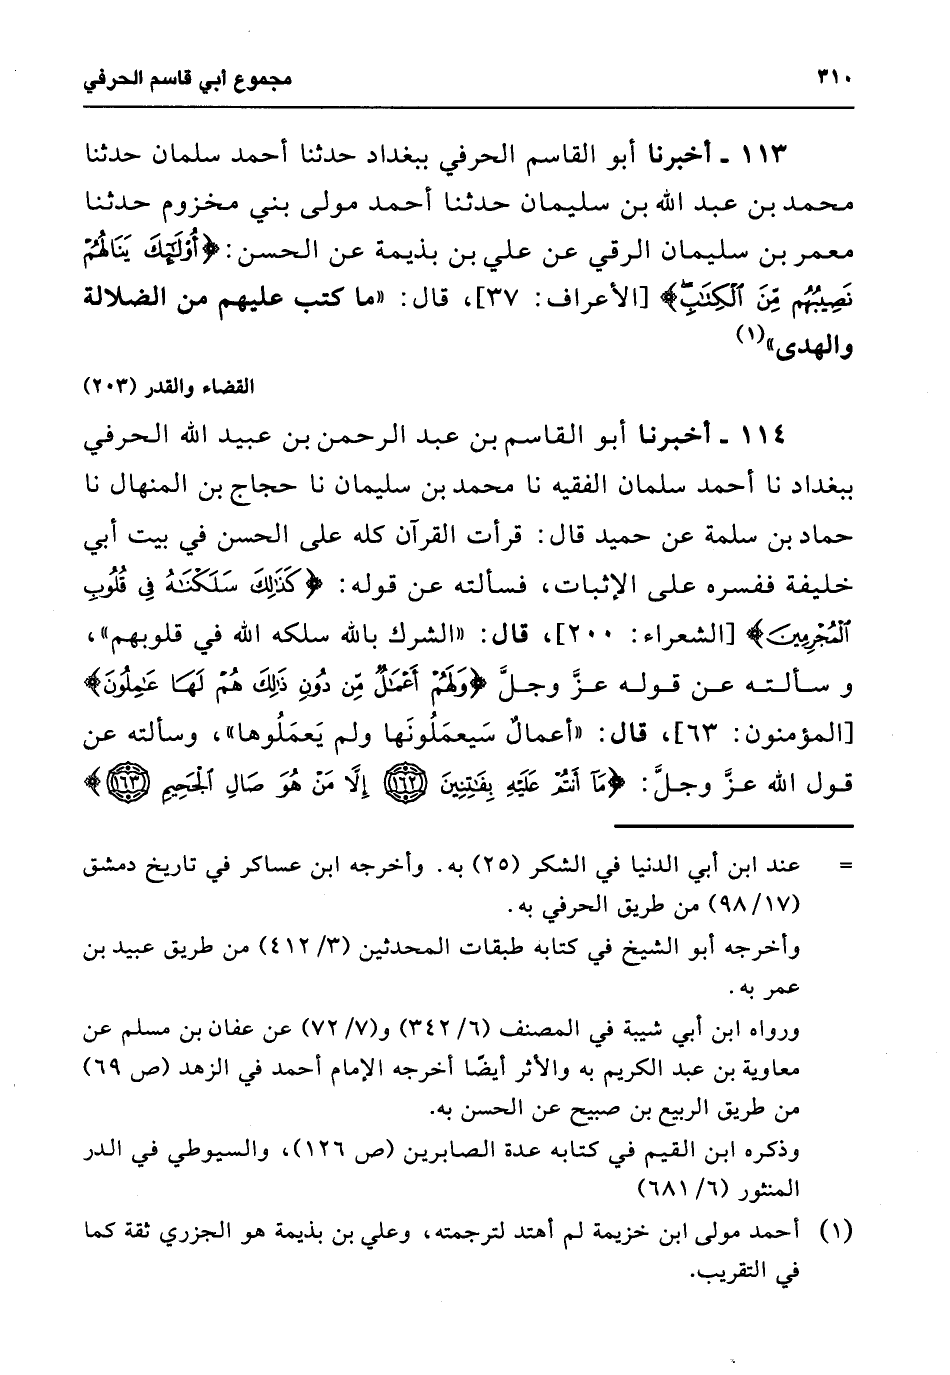 ٣١٠ مجموع أبي قاسم الحرفي
١١٣ ـ أخبرنا أبو القاسم الحرفي ببغداد حدثنا أحمد سلمان حدثنا
محمد بن عبد الله بن سليمان حدثنا أحمد مولى بني مخزوم حدثنا
معمر بن سليمان الرقي عن علي بن بذيمة عن الحسن: ﴿أُوْلَٰٓئِكَ يَنَالُهُمْ
نَصِيبُهُم مِّنَ ٱلْكِتَٰبِۖ﴾ [الأعراف: ٣٧]، قال: «ما كتب عليهم من الضلالة
والهدى»(١)
القضاء والقدر (٢٠٣)
١١٤ ـ أخبرنا أبو القاسم بن عبد الرحمن بن عبيد الله الحرفي
ببغداد نا أحمد سلمان الفقيه نا محمد بن سليمان نا حجاج بن المنهال نا
حماد بن سلمة عن حميد قال: قرأت القرآن كله على الحسن في بيت أبي
خليفة ففسره على الإثبات، فسألته عن قوله: ﴿كَذَٰلِكَ سَلَكْنَٰهُ فِى قُلُوبِ
ٱلْمُجْرِمِينَ﴾ [الشعراء: ٢٠٠]، قال: «الشرك بالله سلكه الله في قلوبهم»،
و سألته عن قوله عزَّ وجلَّ ﴿وَلَهُمْ أَعْمَٰلٌ مِّن دُونِ ذَٰلِكَ هُمْ لَهَا عَٰمِلُونَ﴾
[المؤمنون: ٦٣]، قال: «أعمالٌ سَيعمَلُونَها ولم يَعمَلُوها»، وسألته عن
قول الله عزَّ وجلَّ: ﴿مَآ أَنتُمْ عَلَيْهِ بِفَٰتِنِينَ ١٦٢ إِلَّا مَنْ هُوَ صَالِ ٱلْجَحِيمِ ١٦٣﴾
= عند ابن أبي الدنيا في الشكر (٢٥) به. وأخرجه ابن عساكر في تاريخ دمشق
(٩٨/١٧) من طريق الحرفي به.
وأخرجه أبو الشيخ في كتابه طبقات المحدثين (٣/ ٤١٢) من طريق عبيد بن
عمر به.
ورواه ابن أبي شيبة في المصنف (٦/ ٣٤٢) و(٧/ ٧٢) عن عفان بن مسلم عن
معاوية بن عبد الكريم به والأثر أيضًا أخرجه الإمام أحمد في الزهد (ص ٦٩)
من طريق الربيع بن صبيح عن الحسن به.
وذكره ابن القيم في كتابه عدة الصابرين (ص ١٢٦)، والسيوطي في الدر
المنثور (٦/ ٦٨١)
(١) أحمد مولى ابن خزيمة لم أهتد لترجمته، وعلي بن بذيمة هو الجزري ثقة كما
في التقريب.